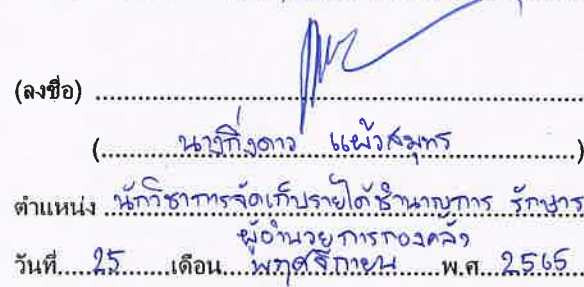 (ลงชื่อ) ........................................................
(............นางกิ่งดาว แผ้วสมุทร............)
ตำแหน่ง นักวิชาการจัดเก็บรายได้ชำนาญการ รักษาราชการ
ผู้อำนวยการกองคลัง
วันที่.....25.......เดือน....พฤศจิกายน......พ.ศ...2565....